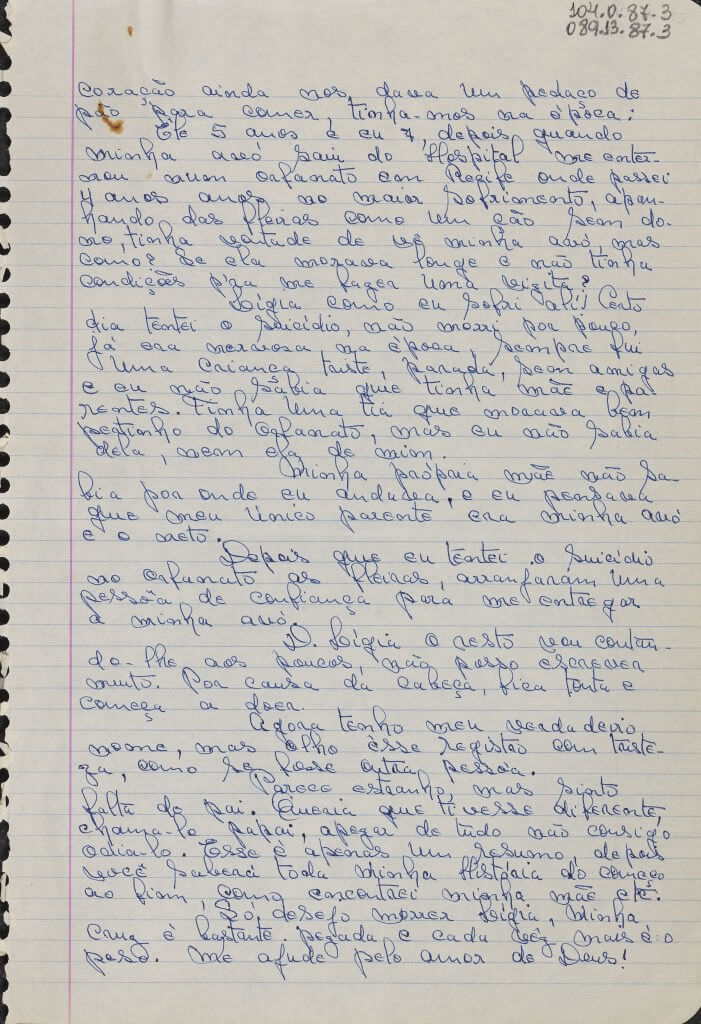 104.0.87.3
089.13.87.3
coração ainda nos dava um pedaço de
pão para comer, tinha-mos na época:
Ele 5 anos e eu 7, depois quando
minha avó saiu do Hospital me enter-
nou num orfanato em Recife onde passei
4 anos anos no maior sofrimento, apan-
hando das freiras como um cão sem do-
no, tinha vontade de vê minha avó, mas
como? Se ela morava longe e não tinha
condições p/ra me fazer uma vizita?
Lígia como eu sofri ali! Certo
dia tentei o suicídio, não morri por pouco,
já era nervosa na época, sempre fui
uma criança triste, parada, sem amigas
e eu não sabia que tinha mãe e pa-
rentes. Tinha uma tia que morava bem
pertinho do orfanato, mas eu não sabia
dela, nem ela de mim.
Minha própria mãe não sa-
bia por onde eu andava, e eu pensava
que meu único parente era minha avó
e o neto.
Depois que eu tentei o suicídio
no orfanato as freiras, arranjaram uma
pessôa de confiança para me entregar
a minha avó.
D. Lígia o resto vou contan-
do-lhe aos poucos, não posso escrever
muito. Por causa da cabeça, fica tonta e
começa a doer.
Agora tenho meu verdadeiro
nome, mas olho êsse registro com triste-
za, como se fosse outra pessôa.
Parece estranho, mas sinto
falta do pai. Queria que tivesse diferente,
chama-lo papai, apezar de tudo não consigo
odia-lo. Esse é apenas um resumo, depois
você saberá toda minha História do começo
ao fim, como encontrei minha mãe etc.
Só desejo morrer Lígia, minha
cruz é bastante pezada e cada vêz mais é o
peso. Me ajude pelo amor de Deus!